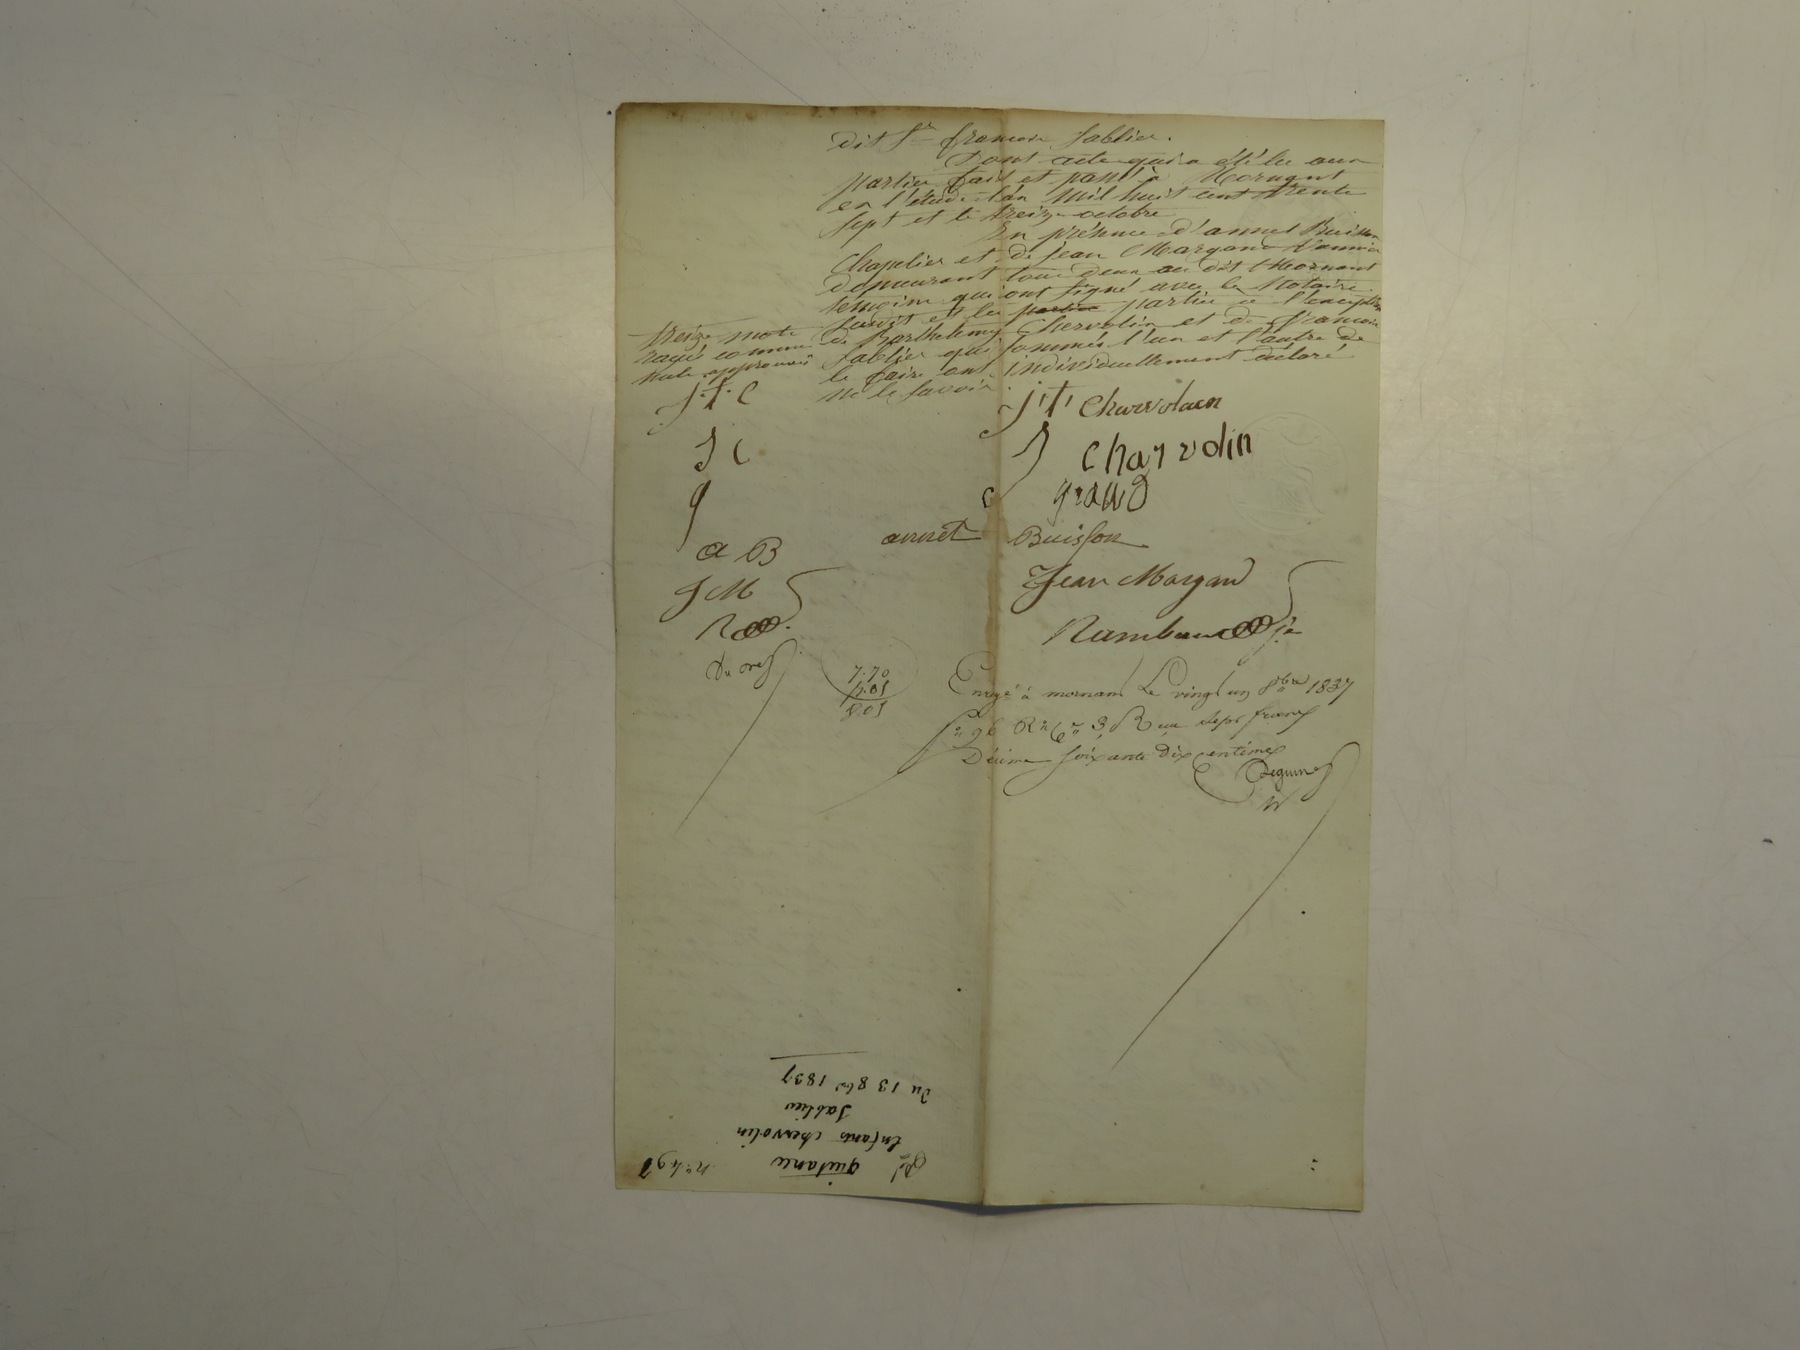 dit Sr francois Sablier.
Dont acte qui a été lu aux
parties fait et passé à Mornant
en l'étude l'an mil huit cent trente
sept et le treize octobre
En présence d'annet Buisson
Chapelier et de Jean Margand Vannier
demeurant tous deux au dit Mornant
témoins qui ont signé avec le Notaire
susdit et les parties parties à l'exception
de Barthelemy Chervolin et de francois
Sablier qui sommés l'un et l'autre de
le faire ont individuellement déclaré
ne le savoir.
treize mots
rayés comme
nuls approuvés
J.t.C
J C
g
a B
J M
R
J.t. Charvolain
J Charvolin
grand
annet Buisson
Jean Margand
7.70
Enregé à mornant Le vingt un 8bre 1837
fo 96 Ro Co 3 R sept francs
Décime soixante dix centimes
quitance
Enfants chervolin
Sablier
Du 13 8bre 1837